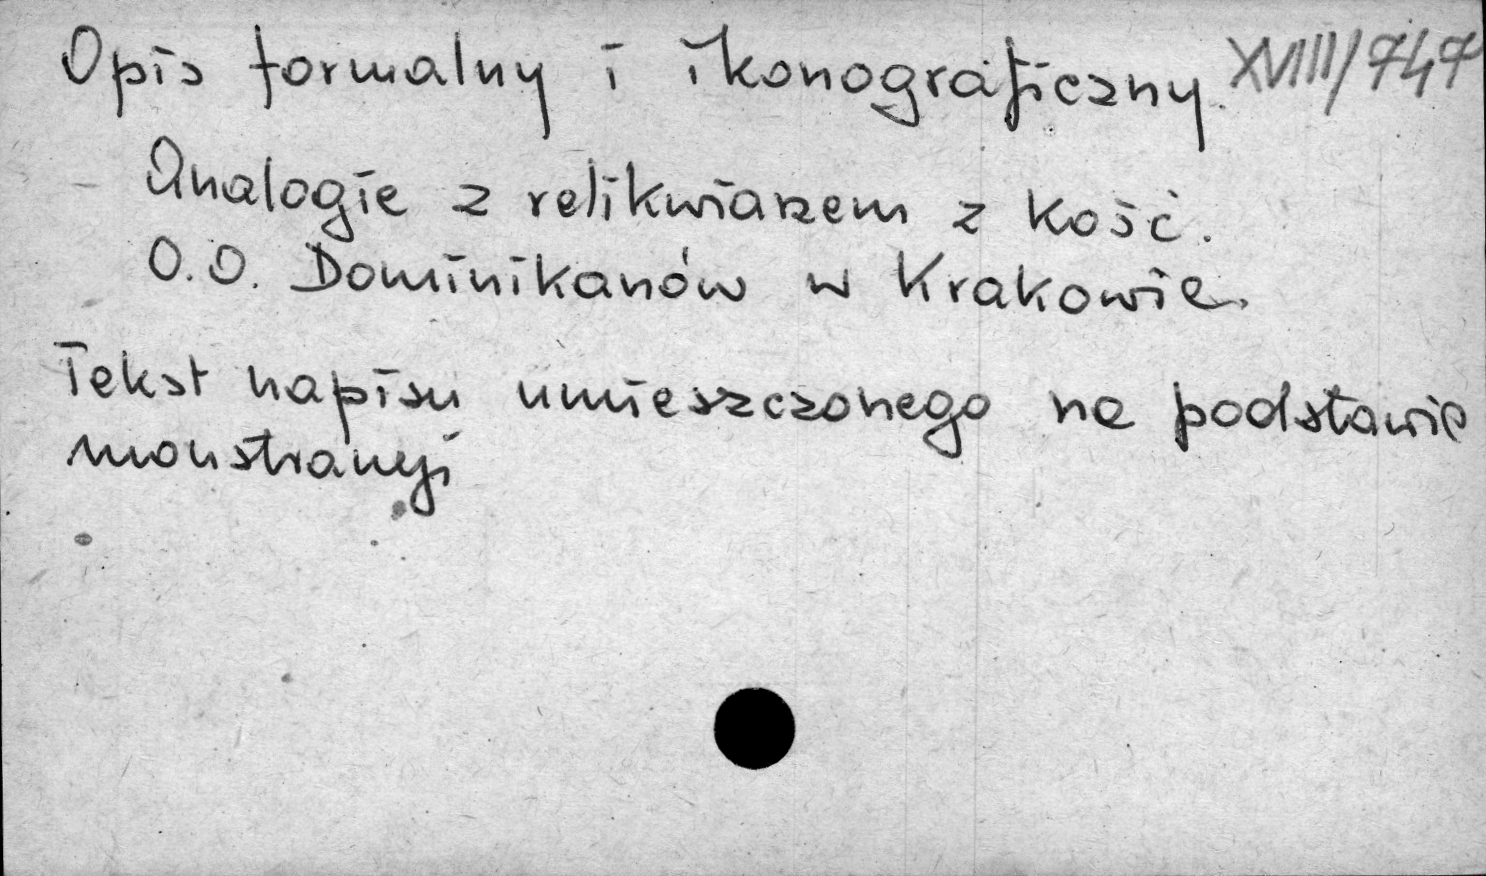 Opis formalny i ikonograficzny. XVIII/747
Analogie z relikwiarzem z kośc.
O.O. Dominikanów w Krakowie.
Tekst napisu umieszczonego na podstawie
monstrancji